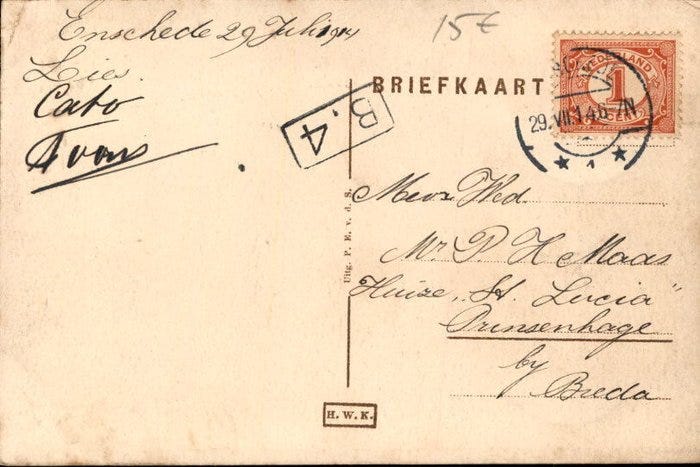 Enschede 29 Juli 1914
Lies.
Cato
Toon
15€
BRIEFKAART
NEDERLAND
1
CENT
29.VII.14 6-7N
1
B.4
Mevr Wed.
Mr. P. H Maas
Huize „St. Lucia"
Prinsenhage
by
Breda
Uitg. P. E. v. d. S.
H.W.K.